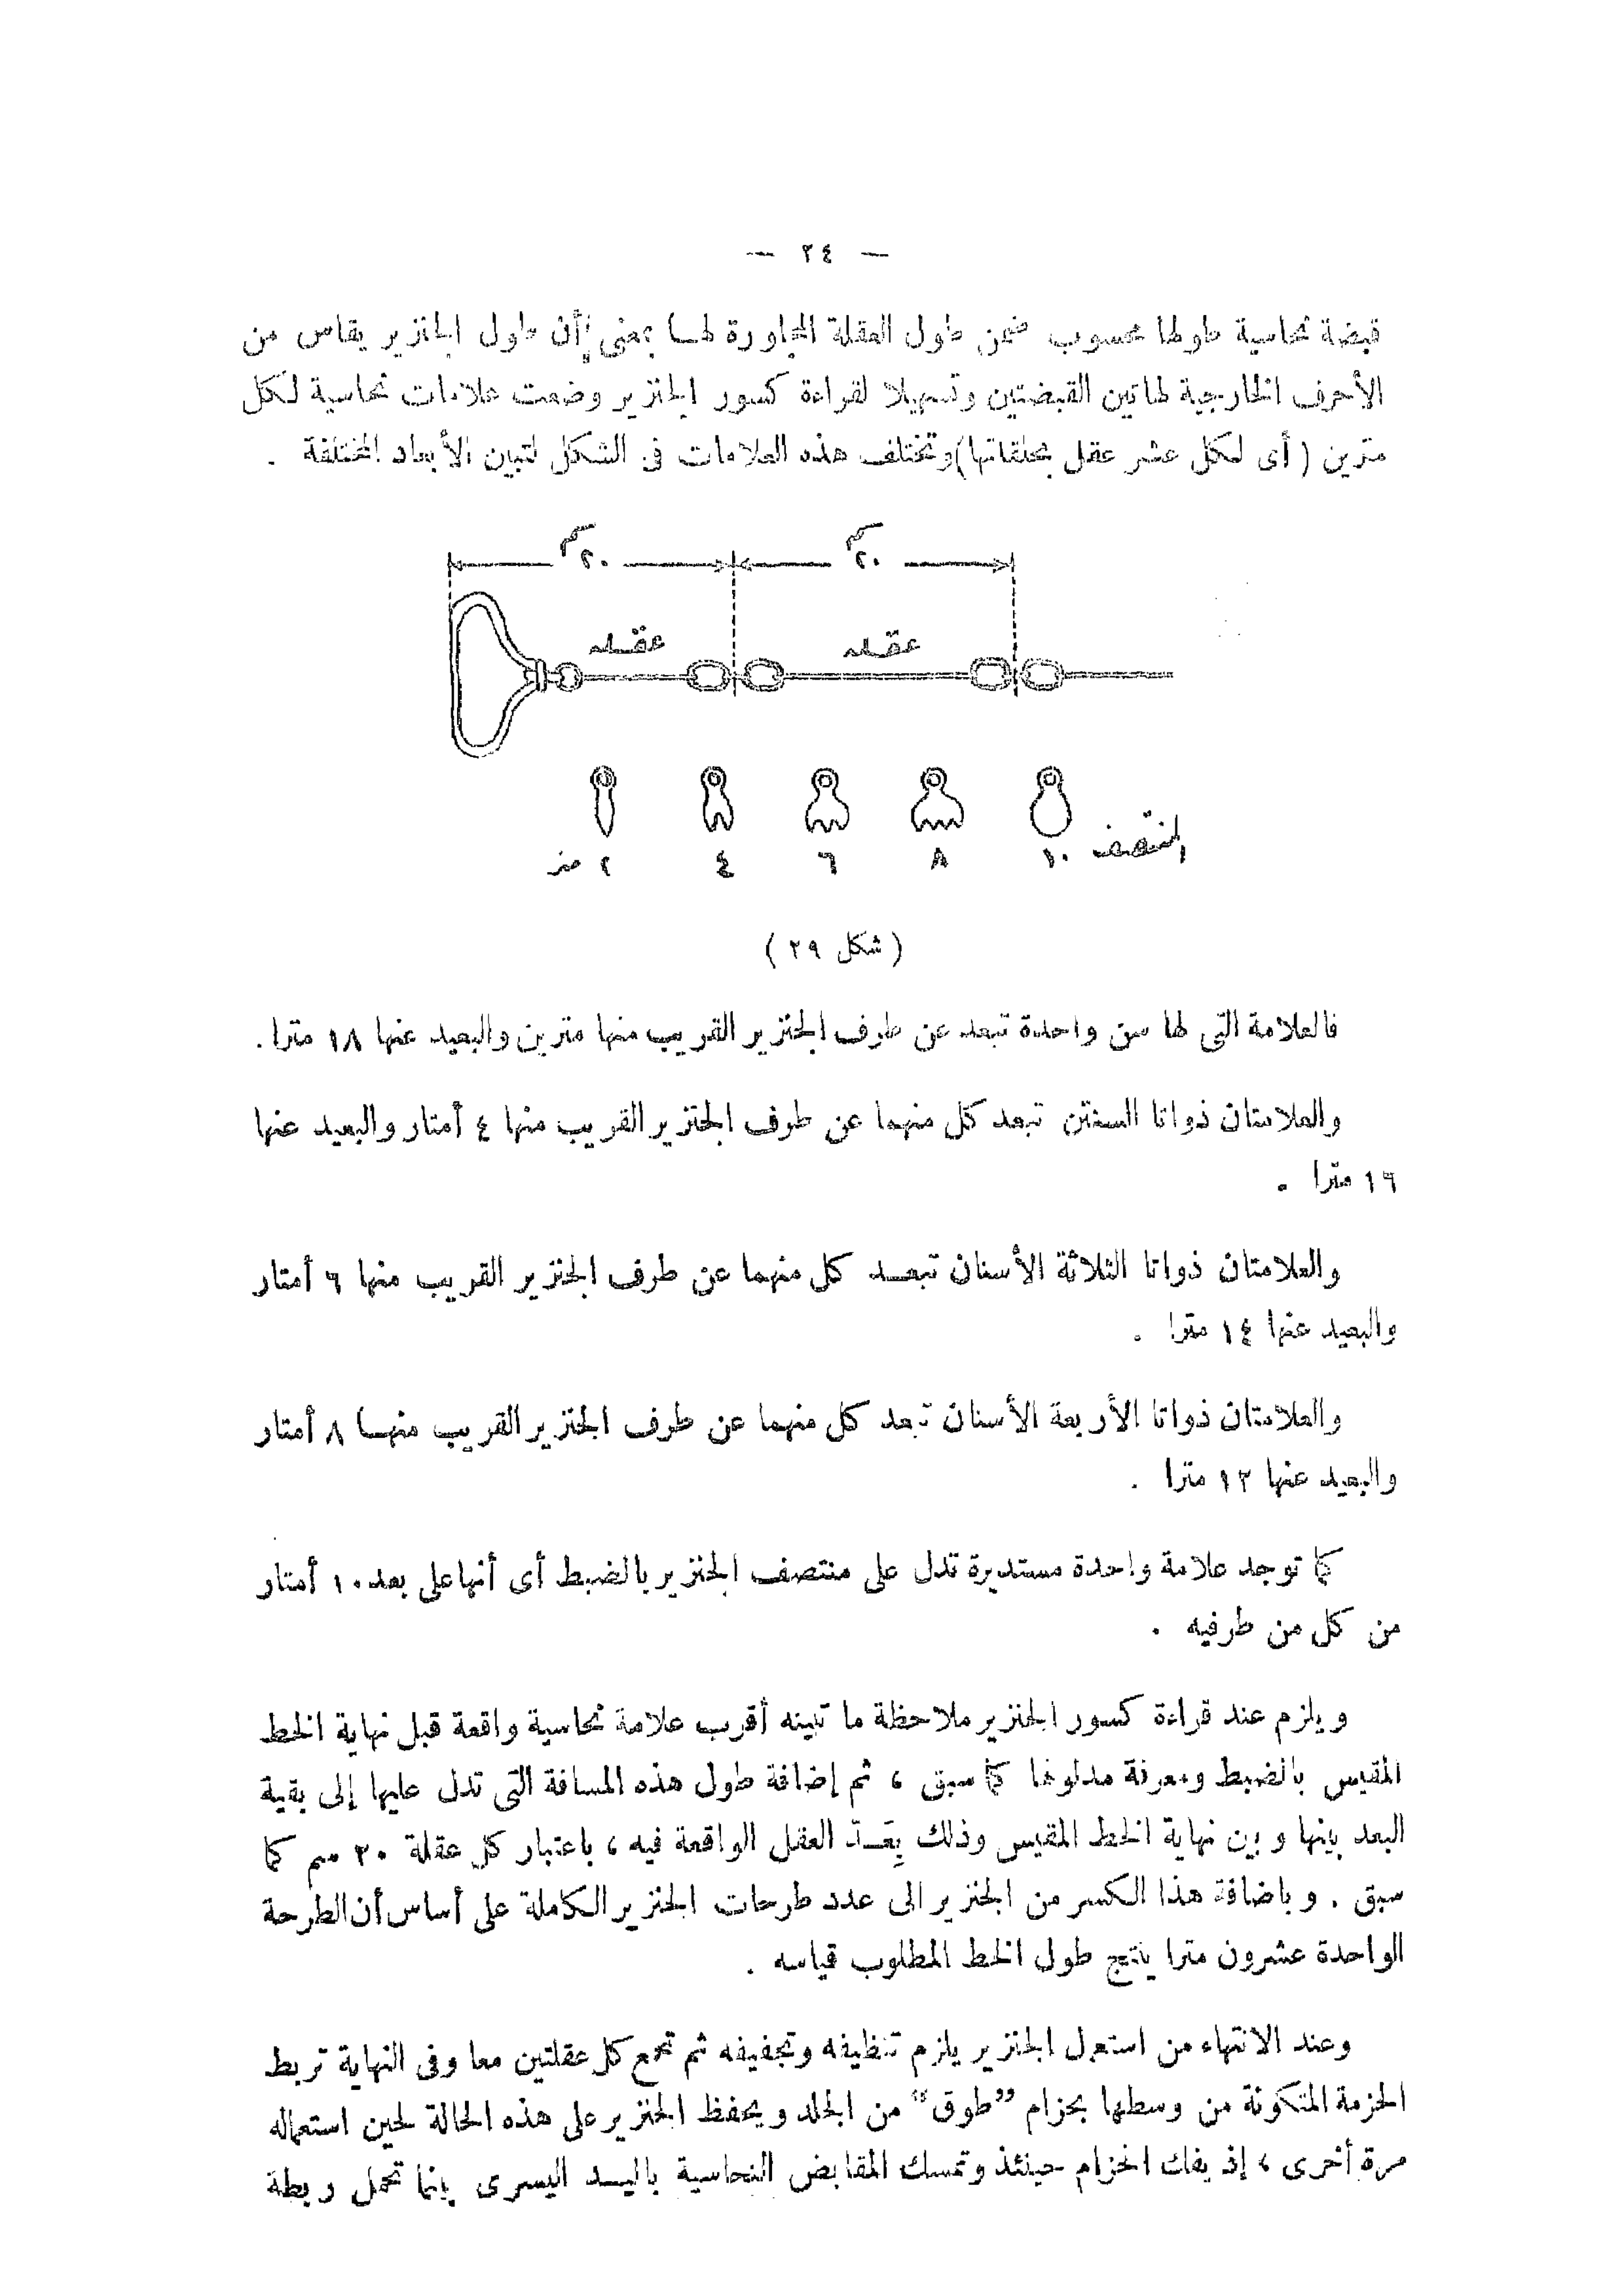 — ٢٤ —
قبضة نحاسية طولها محسوب ضمن طول العقلة المجاورة لها بمعنى أن طول الجنزير يقاس من
الأحرف الخارجية لهاتين القبضتين وتسهيلا لقراءة كسور الجنزير وضعت علامات نحاسية لكل
مترين ( أى لكل عشر عقل بحلقاتها) وتختلف هذه العلامات فى الشكل لتبين الأبعاد المختلفة .
٢٠ سم ٢٠ سم
عقله عقله
٢ متر ٤ ٦ ٨ ١٠ المنتصف
( شكل ٢٩ )
فالعلامة التى لها سن واحدة تبعد عن طرف الجنزير القريب منها مترين والبعيد عنها ١٨ مترا .
والعلامتان ذواتا السنتن تبعد كل منهما عن طرف الجنزير القريب منها ٤ أمتار والبعيد عنها
١٦ مترا .
والعلامتان ذواتا الثلاثة الأسنان تبعد كل منهما عن طرف الجنزير القريب منها ٦ أمتار
والبعيد عنها ١٤ مترا .
والعلامتان ذواتا الأربعة الأسنان تبعد كل منهما عن طرف الجنزير القريب منها ٨ أمتار
والبعيد عنها ١٢ مترا .
كما توجد علامة واحدة مستديرة تدل على منتصف الجنزير بالضبط أى أنها على بعد ١٠ أمتار
من كل من طرفيه .
ويلزم عند قراءة كسور الجنزير ملاحظة ما تبينه أقرب علامة نحاسية واقعة قبل نهاية الخط
المقيس بالضبط ومعرفة مدلولها كما سبق ، ثم إضافة طول هذه المسافة التى تدل عليها إلى بقية
البعد بينها وبين نهاية الخط المقيس وذلك بِعَدّ العقل الواقعة فيه ، باعتبار كل عقلة ٢٠ سم كما
سبق . وباضافة هذا الكسر من الجنزير الى عدد طرحات الجنزير الكاملة على أساس أن الطرحة
الواحدة عشرون مترا ينتج طول الخط المطلوب قياسه .
وعند الانتهاء من استعمال الجنزير يلزم تنظيفه وتجفيفه ثم تجمع كل عقلتين معا وفى النهاية تربط
الحزمة المتكونة من وسطها بحزام ”طوق“ من الجلد ويحفظ الجنزير على هذه الحالة لحين استعماله
مرة أخرى ، إذ يفك الحزام حينئذ وتمسك المقابض النحاسية باليد اليسرى بينما تحمل ربطة